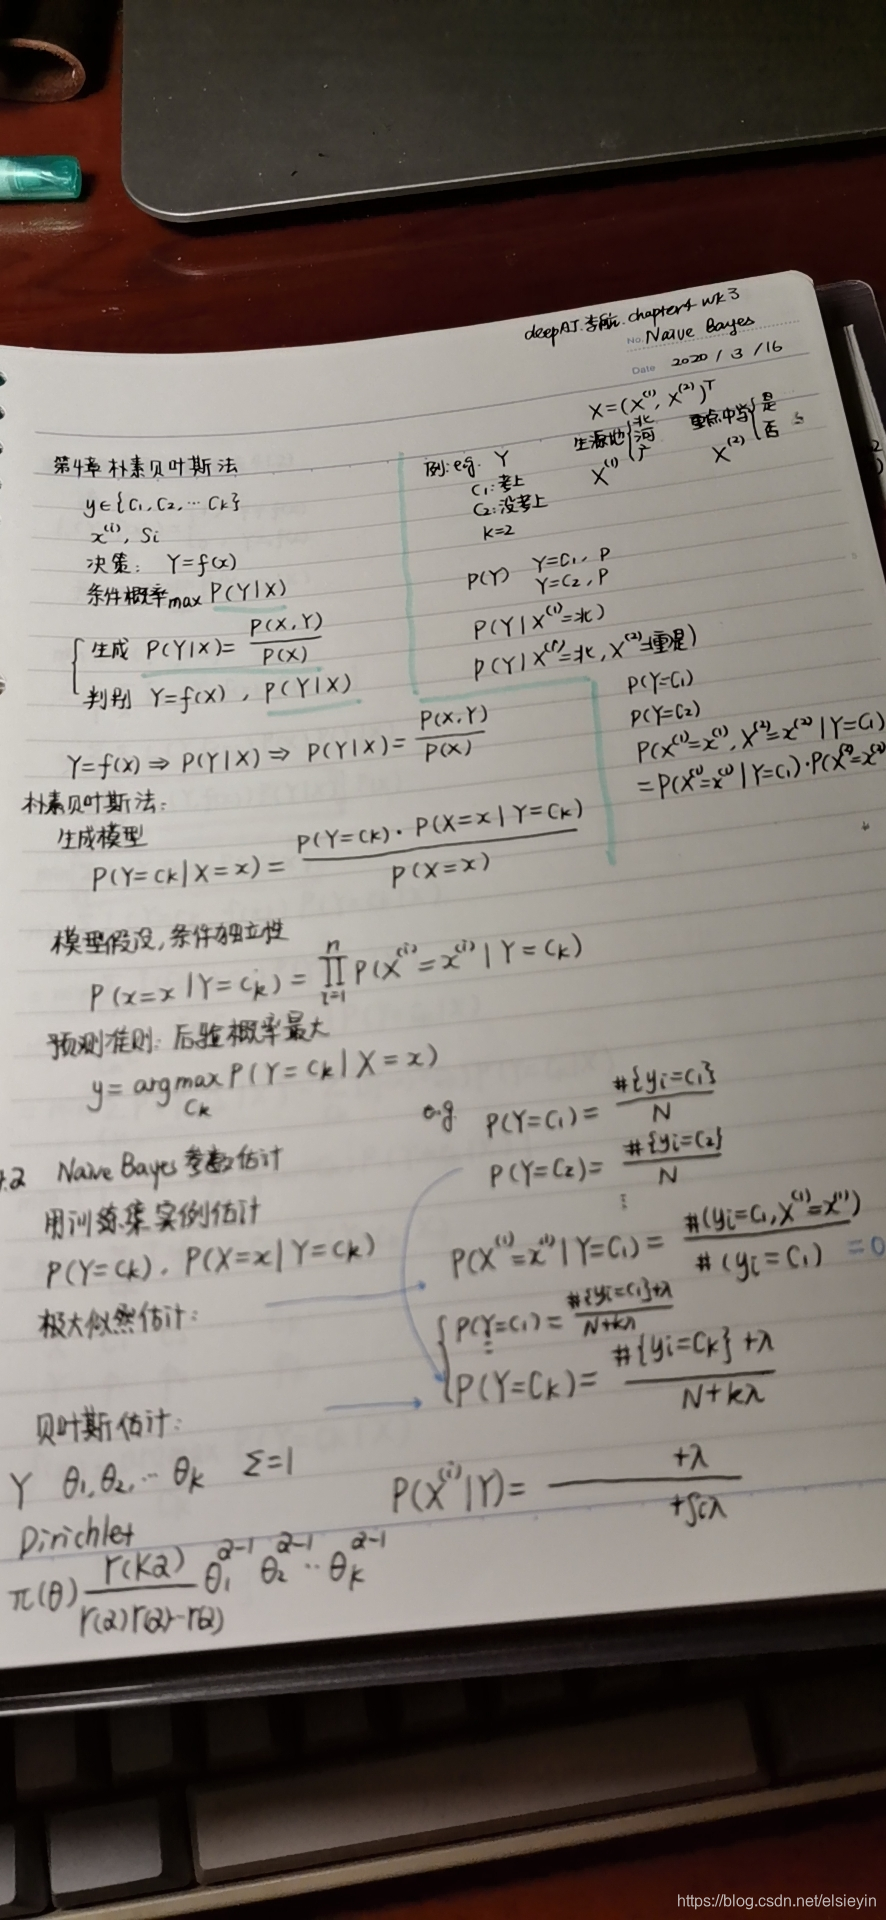 deepAI.李航.chapter4 wk3
No. Naive Bayes
Date 2020 / 3 / 16
第4章 朴素贝叶斯法
y∈{C1, C2, ... Ck}
x^(i), Si
决策: Y=f(x)
条件概率 max P(Y|X)
生成 P(Y|X)= P(X,Y) / P(X)
判别 Y=f(x), P(Y|X)
Y=f(x) ⇒ P(Y|X) ⇒ P(Y|X)= P(X,Y) / P(X)
X=(X^(1), X^(2))^T
例: eg. Y 生源地{北 河 广 重点中学{是 否
X^(1) X^(2)
C1: 考上
C2: 没考上
K=2
P(Y) Y=C1, P
Y=C2, P
P(Y|X^(1)=北)
P(Y|X^(1)=北, X^(2)=重是)
P(Y=C1)
P(Y=C2)
P(X^(1)=x^(1), X^(2)=x^(2)|Y=C1)
=P(X^(1)=x^(1)|Y=C1)·P(X^(2)=x^(2)
朴素贝叶斯法:
生成模型
P(Y=Ck|X=x) = P(Y=Ck)·P(X=x|Y=Ck) / P(X=x)
模型假设,条件独立性
P(x=x|Y=Ck) = ∏_{i=1}^{n} P(X^(i)=x^(i)|Y=Ck)
预测准则: 后验概率最大
y= argmax_{Ck} P(Y=Ck|X=x)
4.2 Naive Bayes 参数估计
用训练集实例估计
P(Y=Ck), P(X=x|Y=Ck)
极大似然估计:
e.g P(Y=C1) = #{yi=C1} / N
P(Y=C2)= #{yi=C2} / N
⋮
P(X^(1)=x^(1)|Y=C1) = #(yi=C1, X^(1)=x^(1)) / #(yi=C1) =0
P(Y=C1)= #{yi=C1}+λ / N+kλ
P(Y=Ck)= #{yi=Ck}+λ / N+kλ
贝叶斯估计:
Y θ1, θ2, ... θk Σ=1
P(X^(i)|Y)= +λ / +Siλ
Dirichlet
π(θ) Γ(Kα) / Γ(α)Γ(α)...Γ(α) θ1^(α-1) θ2^(α-1) ... θk^(α-1)
https://blog.csdn.net/elsieyin